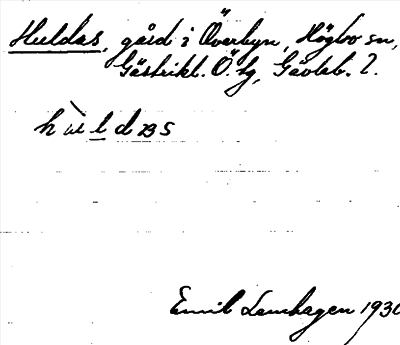 Huldas, gård i Överbyn, Högbo sn,
Gästrikl. Ö. tg, Gävleb. l.
Emil Lamhagen 1930